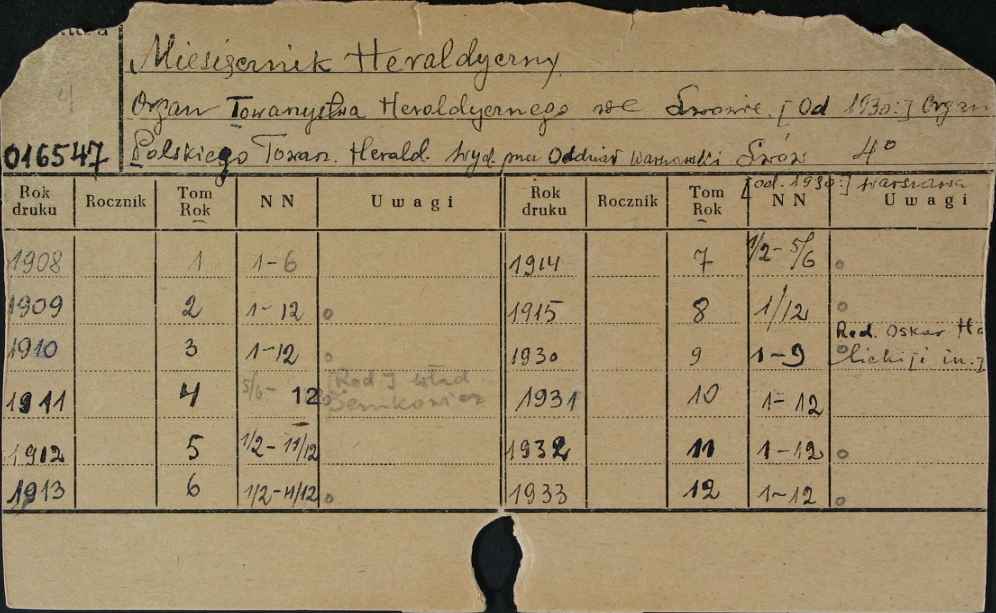 Miesięcznik Heraldyczny
Organ Towarzystwa Heraldycznego we Lwowie. [Od 1930:] Organ
016547 Polskiego Towarz. Herald. Wyd. przez Oddział Warszawski Lwów 4°
[od. 1930:] Warszawa
Rok druku Rocznik Tom Rok NN Uwagi Rok druku Rocznik Tom Rok NN Uwagi
1908 1 1-6 1914 7 1/2-5/6
1909 2 1-12 1915 8 1/12
1910 3 1-12 1930 9 1-9 Red. Oskar Ha
lickiji in.
1911 4 5/6- 12 [Red J Wład 1931 10 1-12
Semkowicz
1912 5 1/2-11/12 1932 11 1-12
1913 6 1/2-11/12 1933 12 1-12